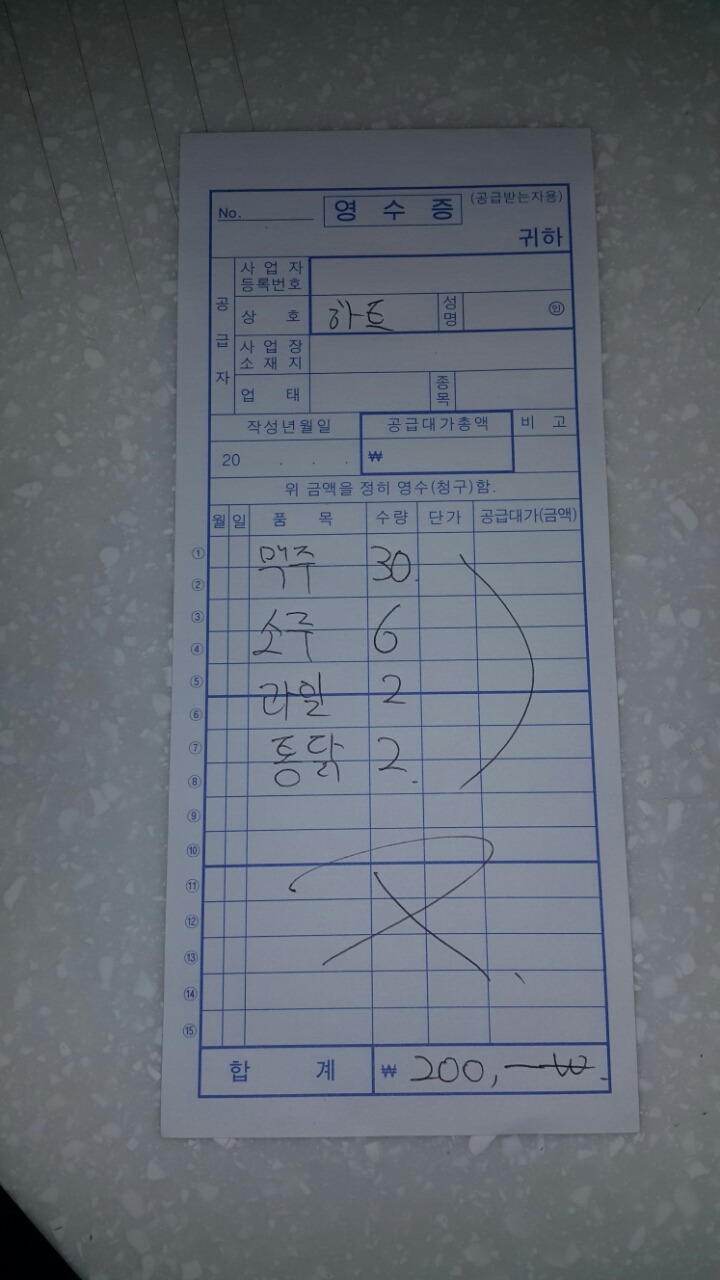 No. 영 수 증 (공급받는자용)
귀하
공급자
사업자등록번호
상 호 하트 성명 ㊞
사업장소재지
업 태 종목
작성년월일 공급대가총액 비 고
20 . . . ₩
위 금액을 정히 영수(청구)함.
월 일 품 목 수량 단가 공급대가(금액)
①
맥주 30
②
③
소주 6
④
⑤
과일 2
⑥
⑦
통닭 2
⑧
⑨
⑩
⑪
⑫
⑬
⑭
⑮
합 계 ₩ 200,—₩.